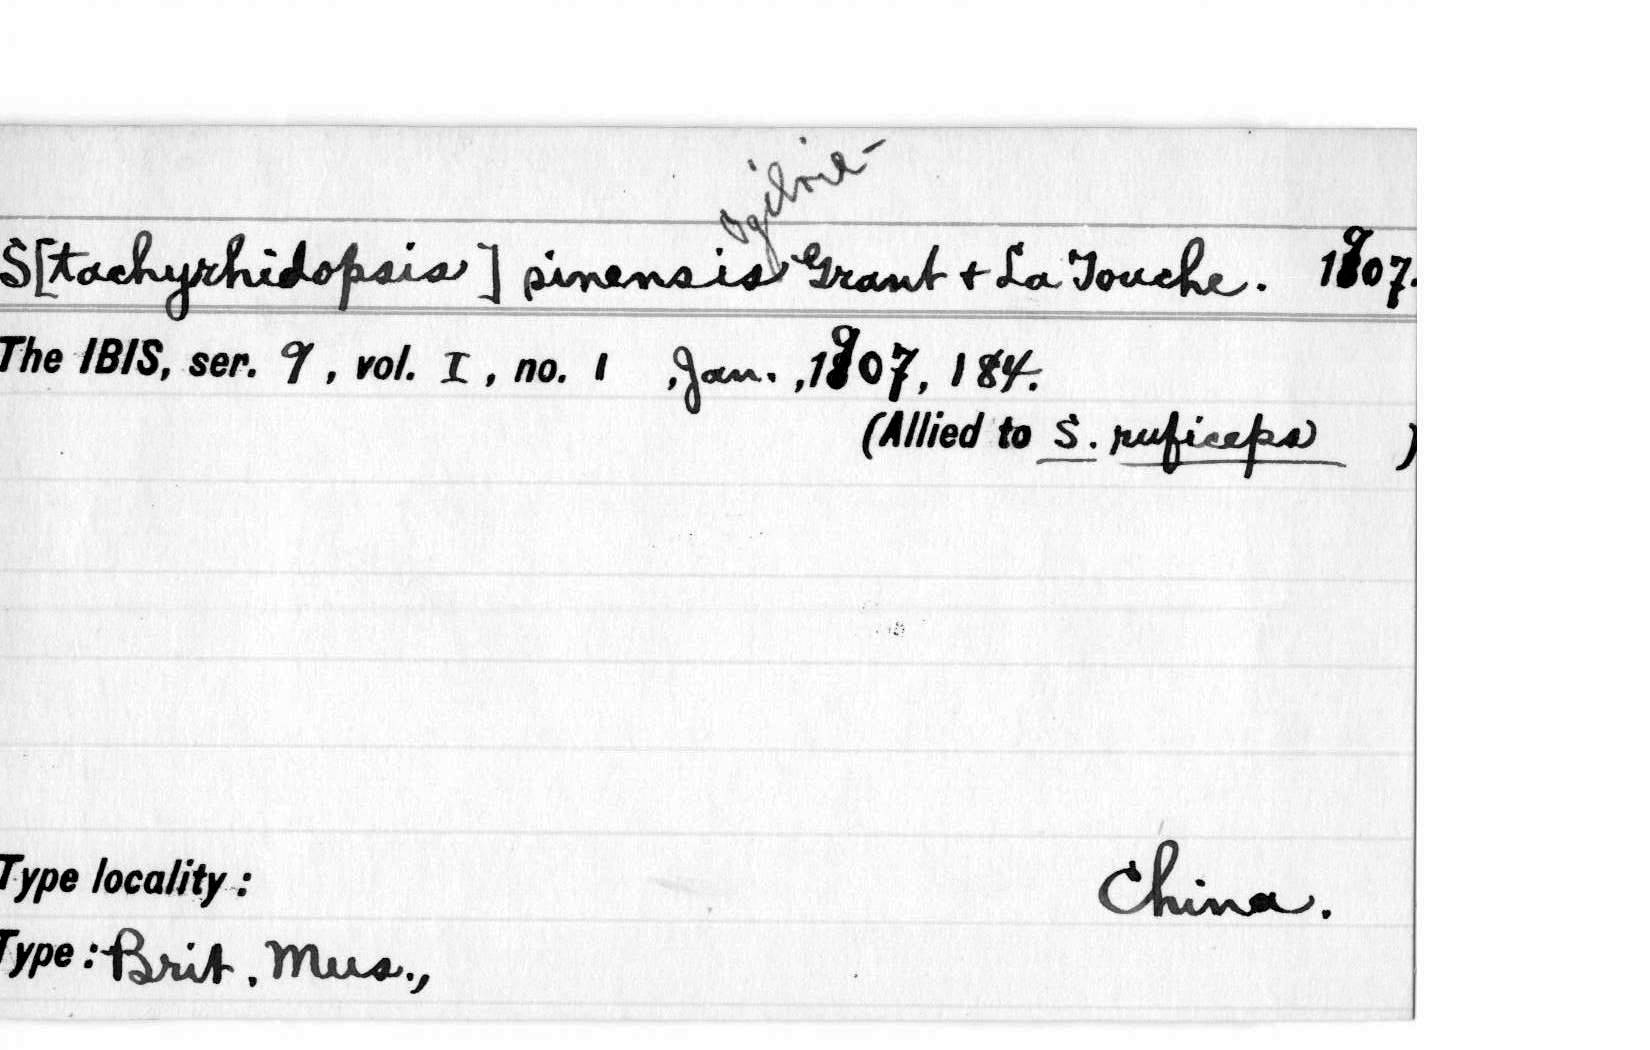 Ogilvie-
S[tachyrhidopsis] sinensis Grant + La Touche. 1907.
The IBIS, ser. 9, vol. I, no. 1, Jan., 1907, 184.
(Allied to S. ruficeps)
Type locality: China.
Type: Brit. Mus.,